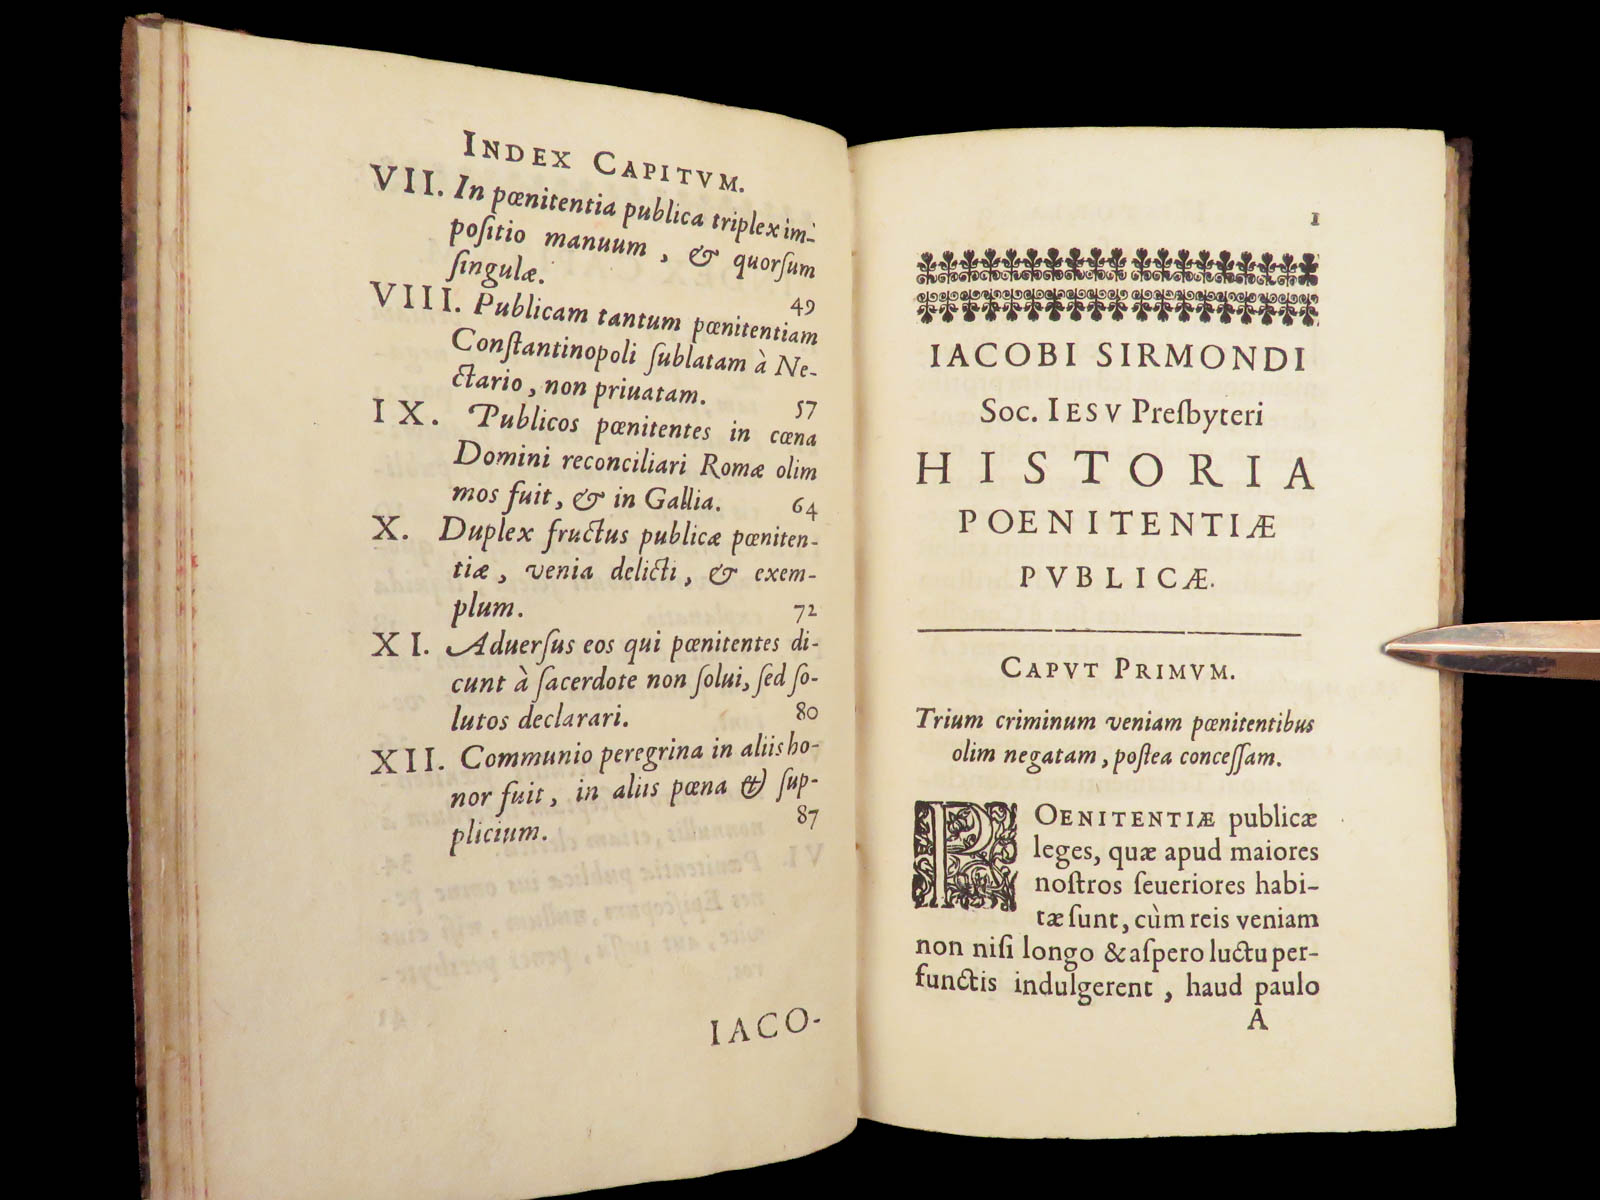 INDEX CAPITVM.
VII. In pœnitentia publica triplex im-
poſitio manuum, & quorſum
ſingulæ. 49
VIII. Publicam tantum pœnitentiam
Conſtantinopoli ſublatam à Ne-
ctario, non priuatam. 57
IX. Publicos pœnitentes in cœna
Domini reconciliari Romæ olim
mos fuit, & in Gallia. 64
X. Duplex fructus publicæ pœniten-
tiæ, venia delicti, & exem-
plum. 72
XI. Aduerſus eos qui pœnitentes di-
cunt à ſacerdote non ſolui, ſed ſo-
lutos declarari. 80
XII. Communio peregrina in aliis ho-
nor fuit, in aliis pœna & ſup-
plicium. 87
IACO-
1
IACOBI SIRMONDI
Soc. IESV Preſbyteri
HISTORIA
POENITENTIÆ
PVBLICÆ.
CAPVT PRIMVM.
Trium criminum veniam pœnitentibus
olim negatam, poſtea conceſſam.
POENITENTIÆ publicæ
leges, quæ apud maiores
noſtros ſeueriores habi-
tæ ſunt, cùm reis veniam
non niſi longo & aſpero luctu per-
functis indulgerent, haud paulo
A